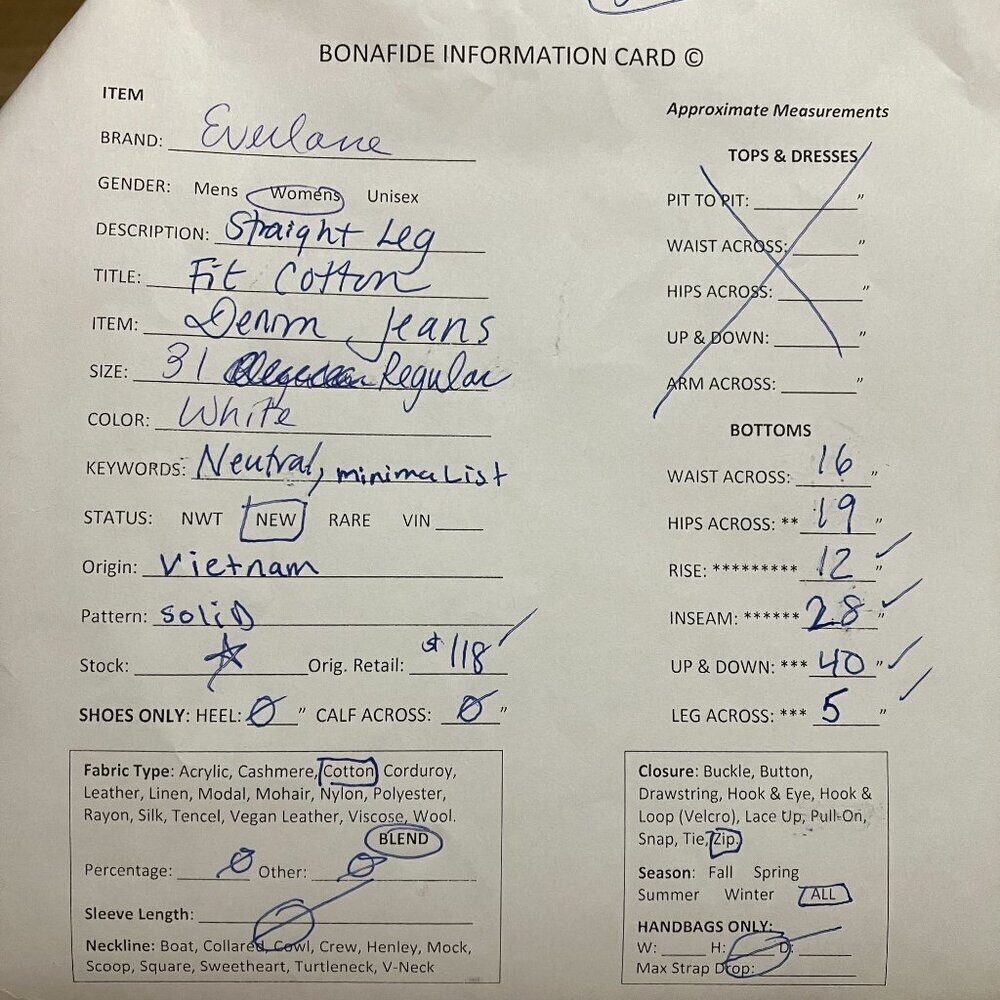 BONAFIDE INFORMATION CARD ©
ITEM
BRAND: Everlane
GENDER: Mens Womens Unisex
DESCRIPTION: Straight Leg
TITLE: Fit Cotton
ITEM: Denim Jeans
SIZE: 31 Regular
COLOR: White
KEYWORDS: Neutral, minimaList
STATUS: NWT NEW RARE VIN
Origin: Vietnam
Pattern: SoliD
Stock: Orig. Retail: $118
SHOES ONLY: HEEL: 0" CALF ACROSS: 0"
Fabric Type: Acrylic, Cashmere, Cotton, Corduroy,
Leather, Linen, Modal, Mohair, Nylon, Polyester,
Rayon, Silk, Tencel, Vegan Leather, Viscose, Wool.
BLEND
Percentage: 0 Other: 0
Sleeve Length:
Neckline: Boat, Collared, Cowl, Crew, Henley, Mock,
Scoop, Square, Sweetheart, Turtleneck, V-Neck
Approximate Measurements
TOPS & DRESSES
PIT TO PIT: "
WAIST ACROSS: "
HIPS ACROSS: "
UP & DOWN: "
ARM ACROSS: "
BOTTOMS
WAIST ACROSS: 16"
HIPS ACROSS: ** 19"
RISE: ********* 12"
INSEAM: ****** 28"
UP & DOWN: *** 40"
LEG ACROSS: *** 5"
Closure: Buckle, Button,
Drawstring, Hook & Eye, Hook &
Loop (Velcro), Lace Up, Pull-On,
Snap, Tie, Zip.
Season: Fall Spring
Summer Winter ALL
HANDBAGS ONLY:
W: H: D:
Max Strap Drop: